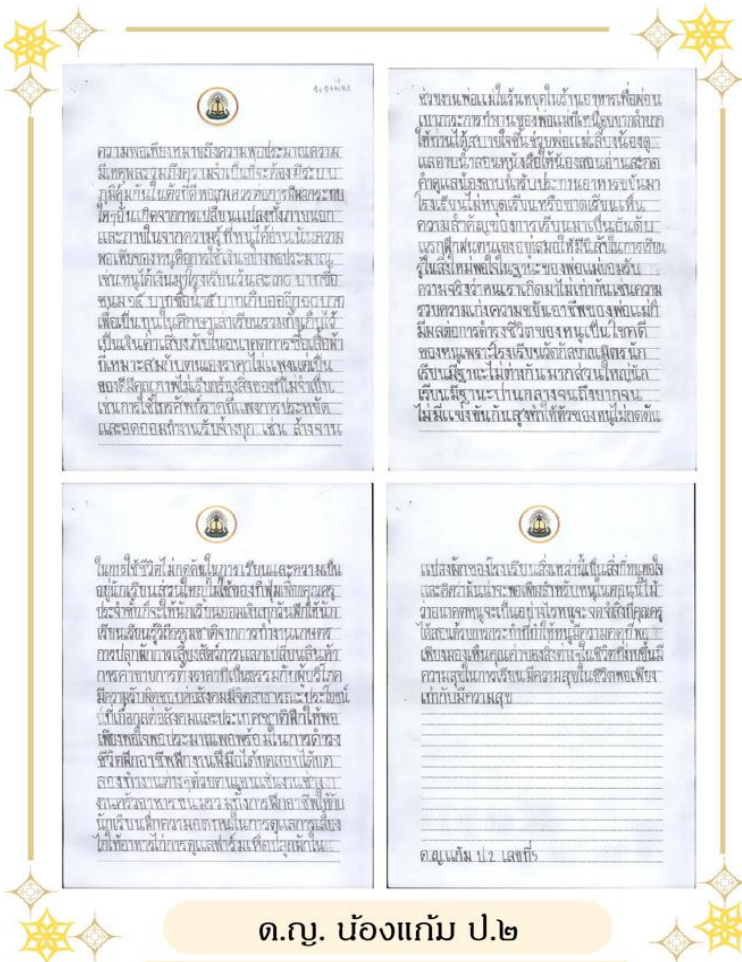 ความพอเพียงหมายถึงความพอประมาณความ
มีเหตุผลรวมถึงความจำเป็นที่จะต้องมีระบบ
ภูมิคุ้มกันในตัวที่ดีพอสมควรต่อการมีผลกระทบ
ใดๆอันเกิดจากการเปลี่ยนแปลงทั้งภายนอก
และภายในจากความรู้ที่หนูได้อ่านนั้นความ
พอเพียงของหนูคือการใช้เงินอย่างพอประมาณ
เช่นหนูได้เงินมาโรงเรียนวันละ๓๐บาทซื้อ
ขนม๑๕บาทซื้อน้ำ๕บาทเก็บออีก๑๐บาท
เพื่อเป็นทุนในศึกษาเล่าเรียนรวมทั้งเก็บไว้
เป็นเงินค่าเสี่ยงภัยในอนาคตการซื้อเสื้อผ้า
ที่เหมาะสมกับตนเองราคาไม่แพงแต่เป็น
ของดีมีคุณภาพไม่เรียกร้องสิ่งของที่ไม่จำเป็น
เช่นการใช้โทรศัพท์ราคาที่แพงการประหยัด
และอดออมทำงานรับจ้างทุก เช่น ล้างจาน
ช่วยงานพ่อแม่ในวันหยุดในร้านอาหารเพื่อผ่อน
เบาภาระการทำงานของพ่อแม่ที่เหนื่อยยากลำบาก
ให้ท่านได้สบายใจขึ้นช่วยพ่อแม่เลี้ยงน้องดู
แลอาบน้ำสอนหนังสือให้น้องสอนอ่านสะกด
คำดูแลน้องอาบน้ำรับประทานอาหารขยันมา
โรงเรียนไม่หยุดเรียนหรือขาดเรียนเห็น
ความสำคัญของการเรียนมาเป็นอันดับ
แรกฝึกฝนตนเองอยู่เสมอให้มีนิสัยในการเรียน
รู้ในสิ่งใหม่พอใจในฐานะของพ่อแม่ยอมรับ
ความจริงว่าคนเราเกิดมาไม่เท่ากันเช่นความ
รวยความเก่งความขยันอาชีพของพ่อแม่ก็
มีผลต่อการดำรงชีวิตของหนูเป็นโชคดี
ของหนูเพราะโรงเรียนวัดกัลยาณมิตรนัก
เรียนมีฐานะไม่ต่างกันมากส่วนใหญ่นัก
เรียนมีฐานะปานกลางจนถึงยากจน
ไม่มีแข่งขันกันสูงทำให้ตัวของหนูไม่กดดัน
ในการใช้ชีวิตไม่กดดันในการเรียนและความเป็น
อยู่นักเรียนส่วนใหญ่ไม่ใช้ของที่ฟุ่มเฟือยคุณครู
ประจำชั้นก็จะให้นักเรียนออมเงินทุกวันฝึกให้นัก
เรียนเรียนรู้วิถีธรรมชาติจากการทำงานเกษตร
การปลูกผักการเลี้ยงสัตว์การแลกเปลี่ยนสินค้า
การค้าขายการตั้งราคาที่เป็นธรรมกับผู้บริโภค
มีความรับผิดชอบต่อสังคมมีจิตสาธารณะประโยชน์
ที่เกื้อกูลต่อสังคมและประเทศชาติฝึกให้พอ
เพียงพอใจพอประมาณพอพร้อมในการดำรง
ชีวิตฝึกอาชีพฝึกงานฝีมือได้ทดสอบได้ทด
ลองทำงานต่างๆด้วยตนเองเช่นงานช่าง
งานครัวอาหารขนมรวมทั้งการฝึกอาชีพให้กับ
นักเรียนฝึกความอดทนในการดูแลการเลี้ยง
ไก่ให้อาหารไก่การดูแลฟาร์มเห็ดปลูกผักใน
แปลงผักของโรงเรียนสิ่งเหล่านี้เป็นสิ่งที่หนูพอใจ
และคิดว่ามันน่าจะพอเพียงสำหรับหนูในตอนนี้ไม่
ว่าอนาคตหนูจะเป็นอย่างไรหนูจะจดจำสิ่งที่คุณครู
ได้สอนด้วยการกระทำที่ทำให้หนูมีความคิดที่พอ
เพียงมองเห็นคุณค่าของสิ่งต่างๆในชีวิตที่มากขึ้นมี
ความสุขในการเรียนมีความสุขในชีวิตพอเพียง
เท่ากับมีความสุข
ด.ญ.แก้ม ป.2 เลขที่5
ด.ญ. น้องแก้ม ป.๒